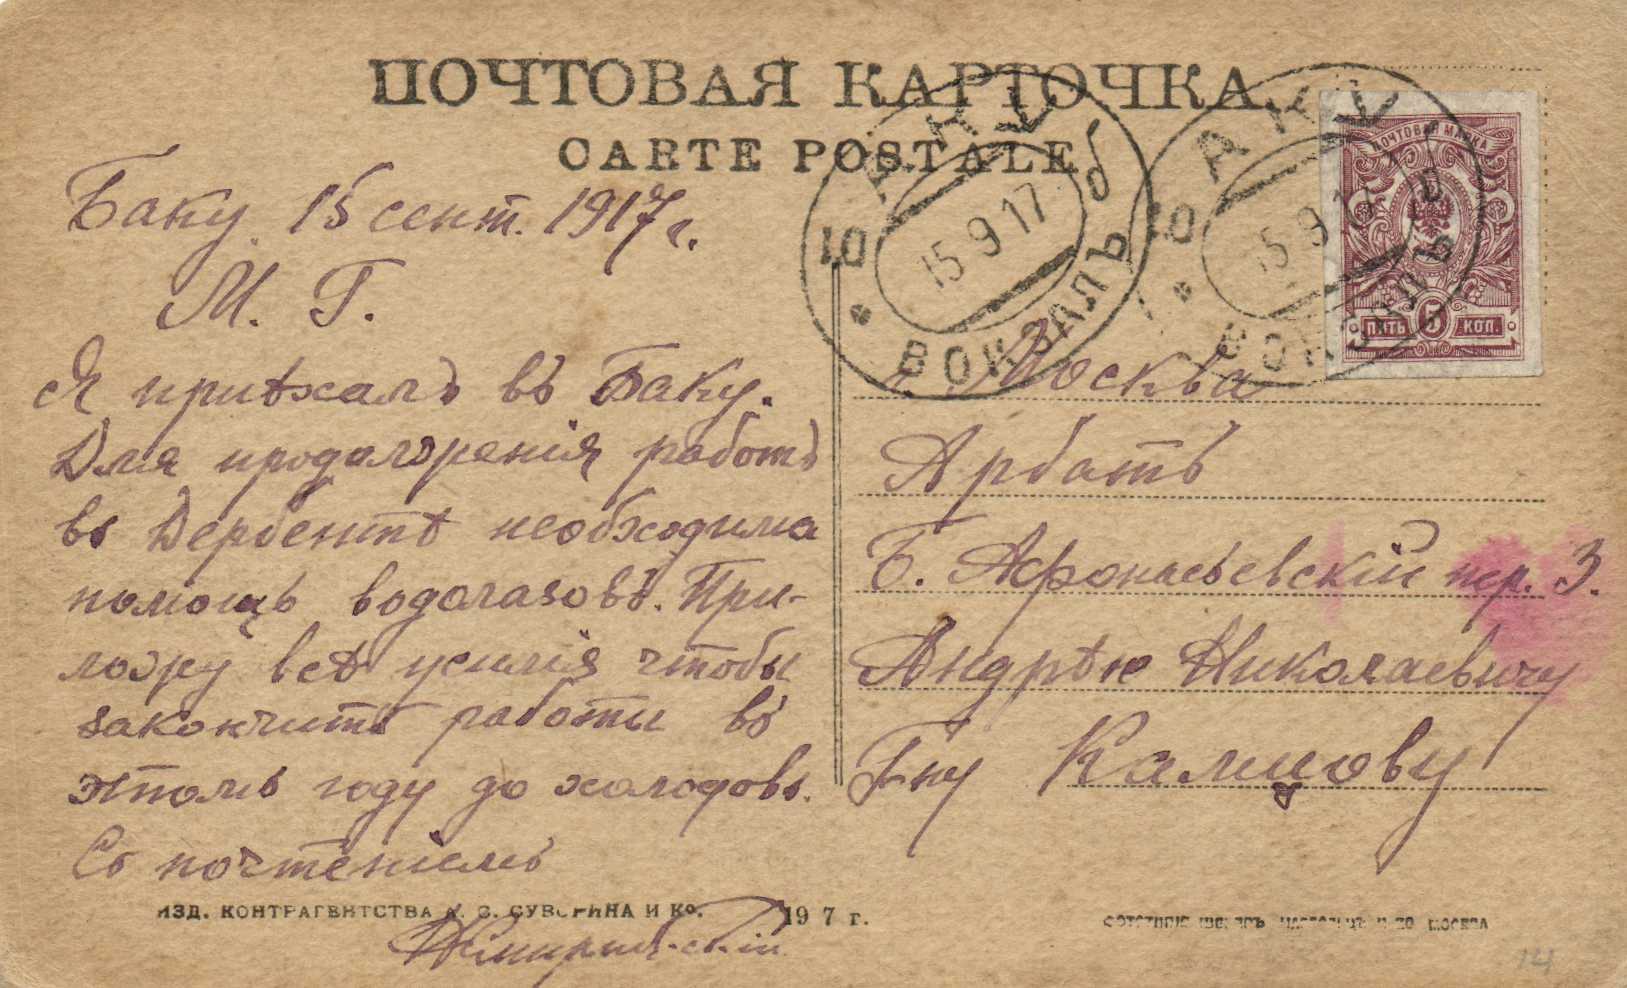 ПОЧТОВАЯ КАРТОЧКА.
CARTE POSTALE
Баку 15 сент. 1917 г.
М. Г.
Я приѣхалъ въ Баку.
Для продолженія работъ
въ Дербентѣ необходима
помощь водолазовъ. При-
ложу всѣ усилія чтобы
закончить работы въ
этомъ году до холодовъ.
Съ почтеніемъ
ИЗД. КОНТРАГЕНТСТВА А. С. СУВОРИНА И Ко. 1917 г.
БАКУ
15 9 17
ВОКЗАЛЪ
БАКУ
15 9 17
ВОКЗАЛЪ
ПОЧТОВАЯ МАРКА
ПЯТЬ 5 КОП.
г. Москва
Арбатъ
Б. Афонасьевскій пер. 3.
Андрѣю Николаевичу
Г-ну Калмцову
МОСКВА
14